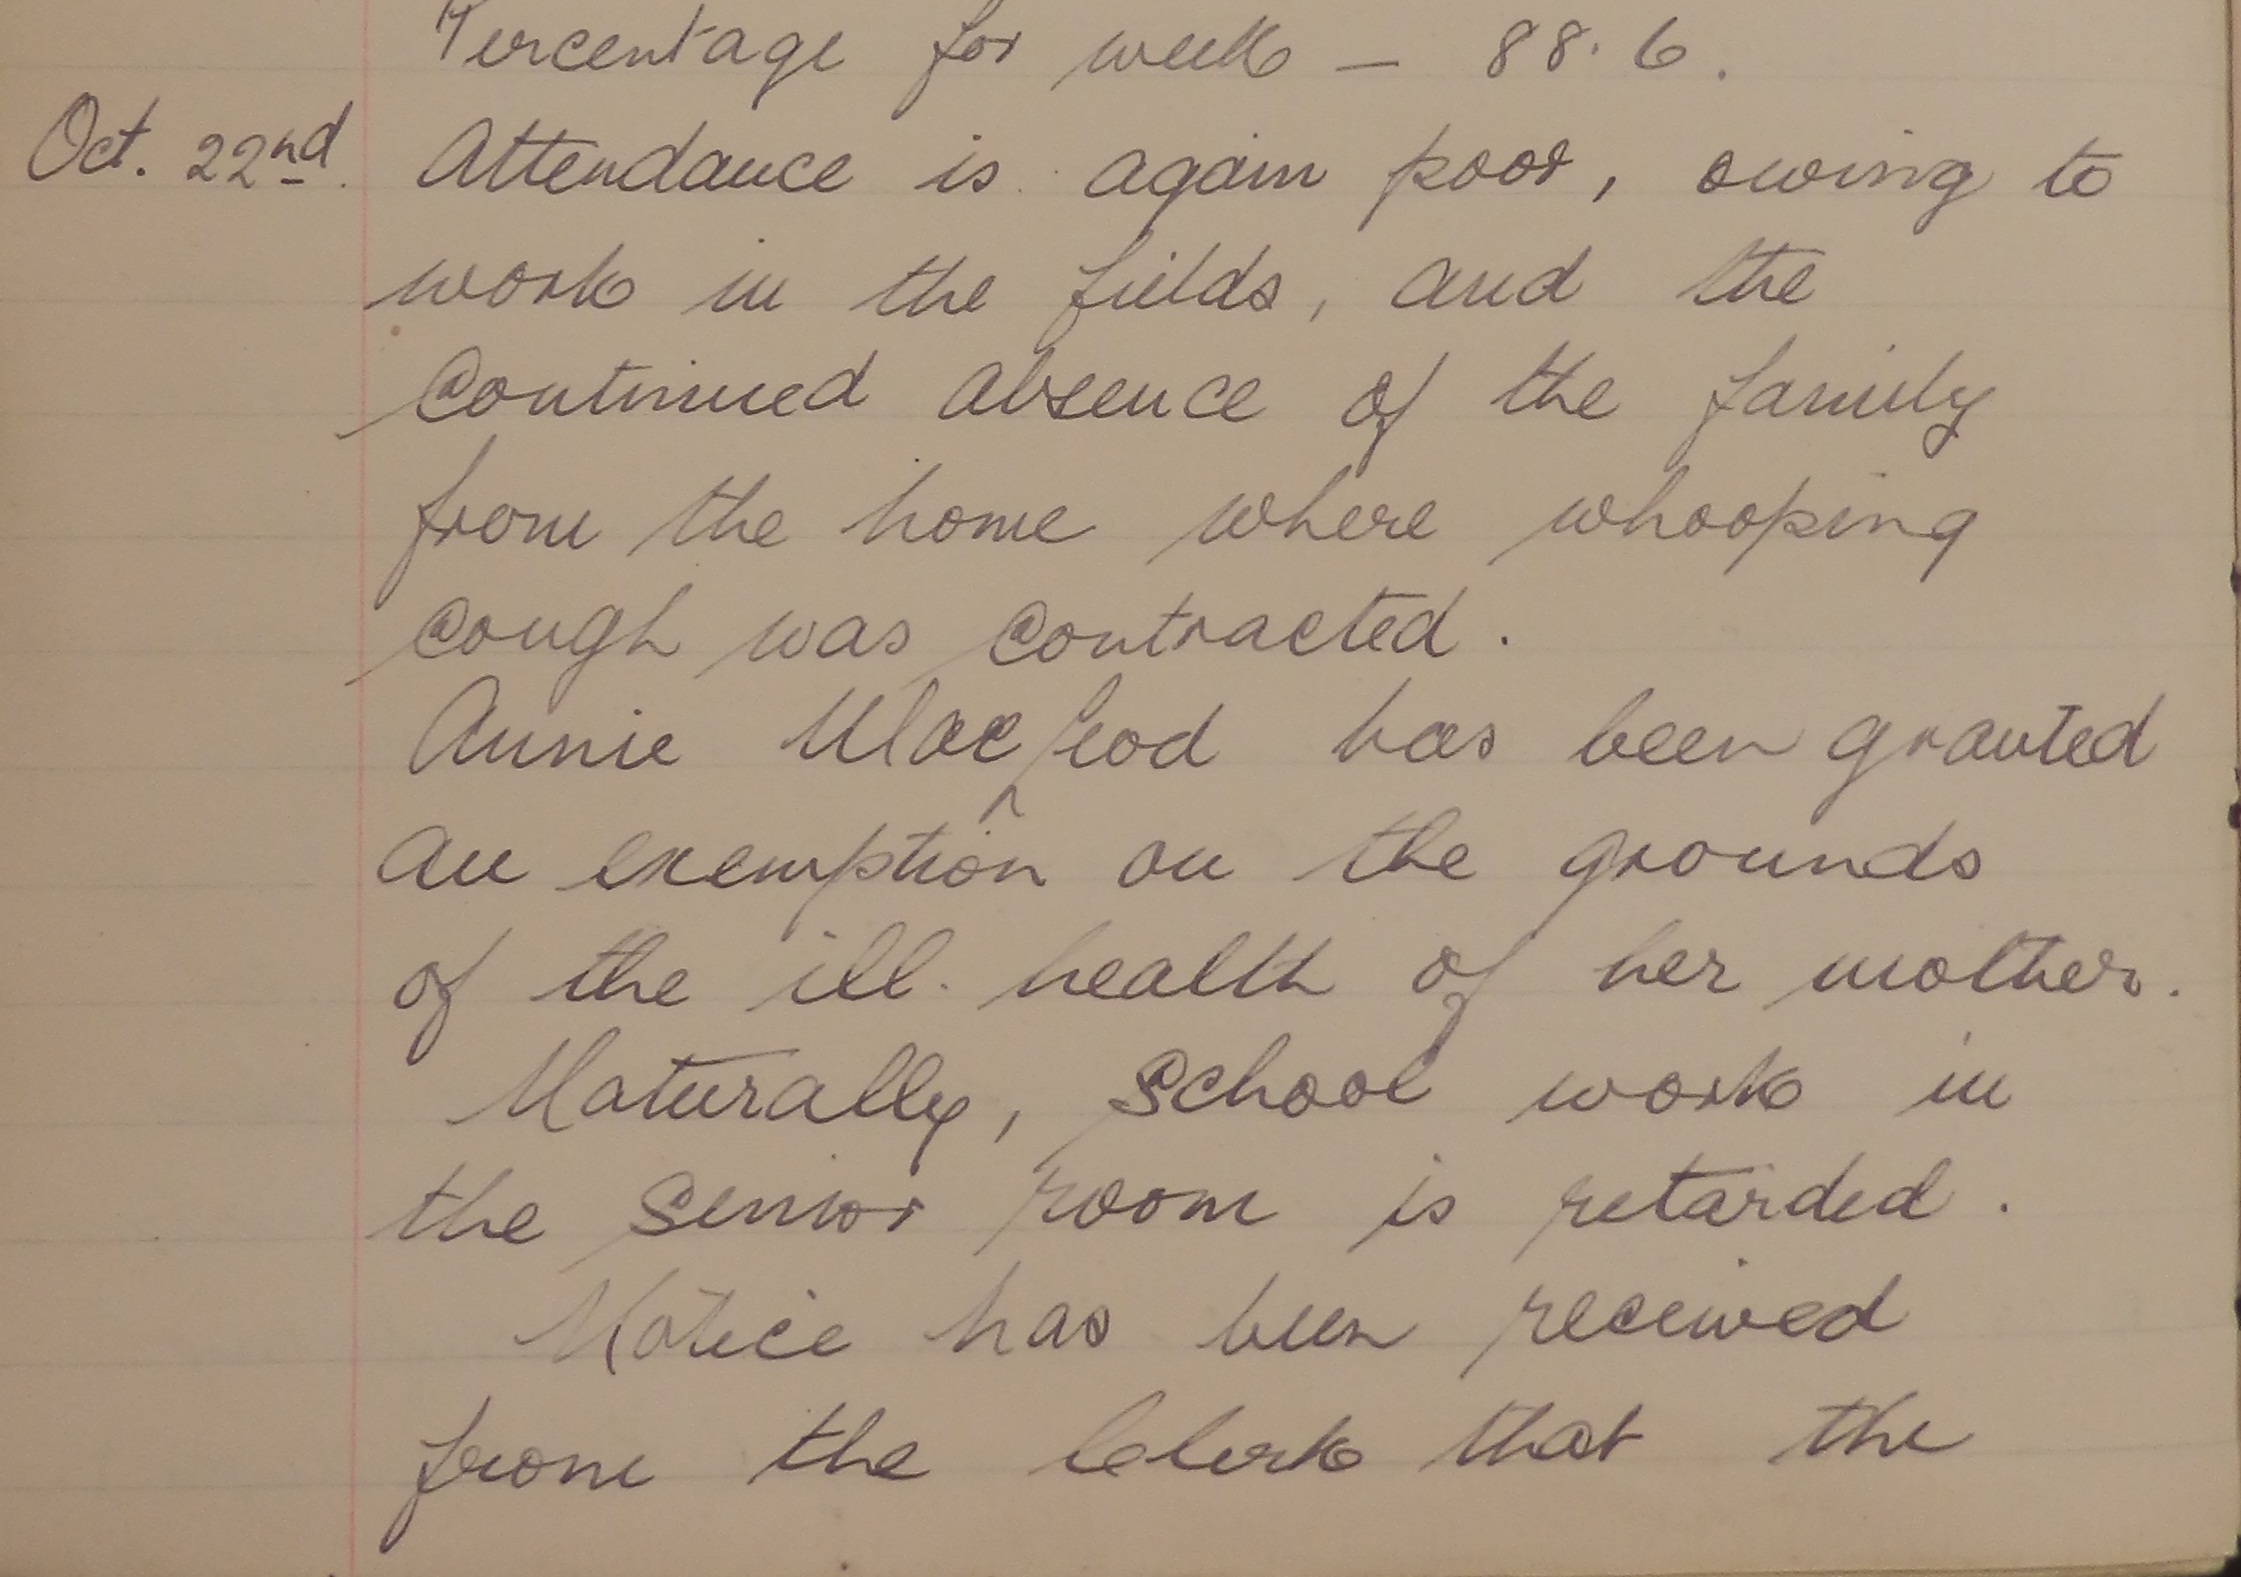 Percentage for week — 88.6.
Oct. 22nd. Attendance is again poor, owing to
work in the fields, and the
continued absence of the family
from the home where whooping
cough was contracted.
Annie MacLeod has been granted
an exemption on the grounds
of the ill-health of her mother.
Naturally, school work in
the senior room is retarded.
Notice has been received
from the Clerk that the